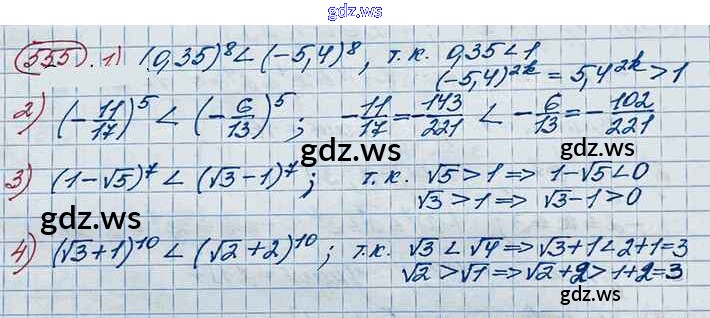 gdz.ws
555. 1) (0,35)⁸ < (-5,4)⁸, т.к. 0,35 < 1
(-5,4)²ᵏ = 5,4²ᵏ > 1
2) (-11/17)⁵ < (-6/13)⁵; -11/17 = -143/221 < -6/13 = -102/221
gdz.ws
3) (1-√5)⁷ < (√3-1)⁷; т.к. √5 > 1 => 1-√5 < 0
√3 > 1 => √3-1 > 0
gdz.ws
gdz.ws
4) (√3+1)¹⁰ < (√2+2)¹⁰; т.к. √3 < √4 => √3+1 < 2+1=3
√2 > √1 => √2+2 > 1+2=3
gdz.ws
gdz.ws